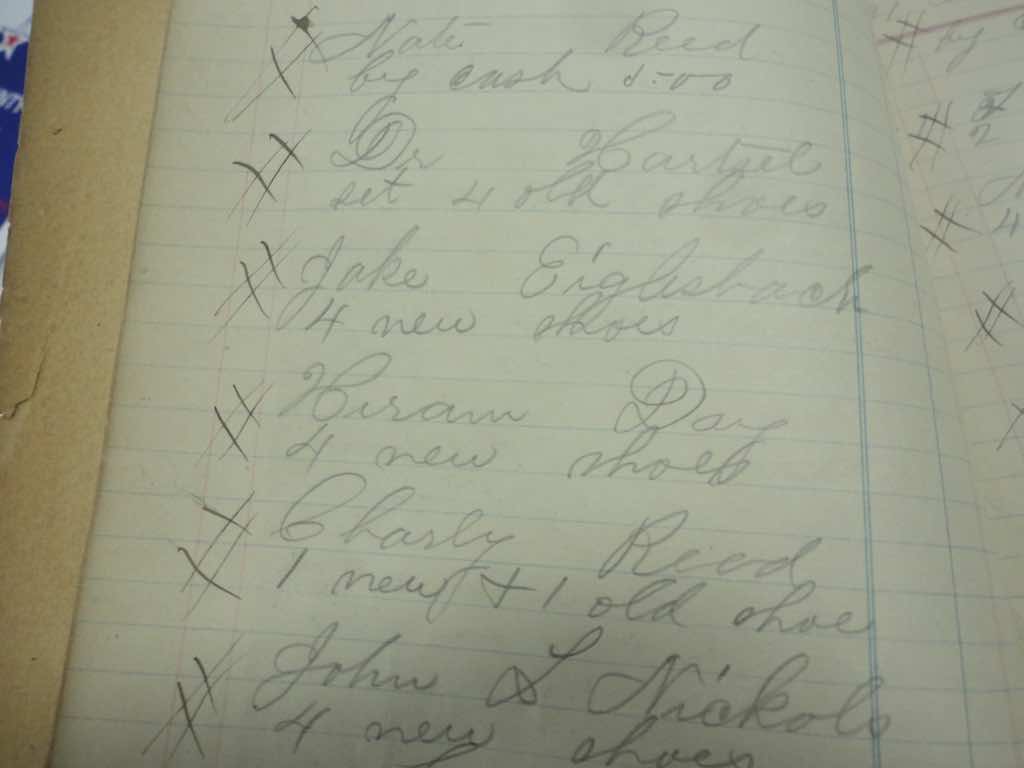 Nate Reed
by cash 5.00
Dr Hartzel
set 4 old shoes
Jake Eiglisbach
4 new shoes
Hiram Day
4 new shoes
Charly Reed
1 new + 1 old shoe
John S Nickols
4 new shoes
by
2
4